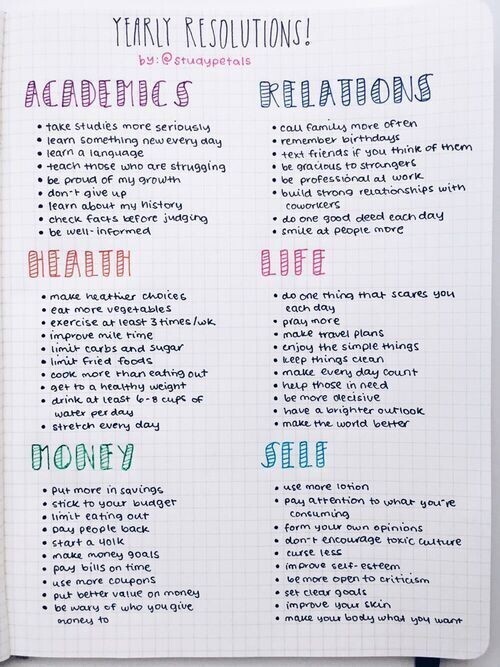 YEARLY RESOLUTIONS!
by: @studypetals
ACADEMICS
• take studies more seriously
• learn something new every day
• learn a language
• teach those who are struggling
• be proud of my growth
• don't give up
• learn about my history
• check facts before judging
• be well-informed
RELATIONS
• call family more often
• remember birthdays
• text friends if you think of them
• be gracious to strangers
• be professional at work
• build strong relationships with
coworkers
• do one good deed each day
• smile at people more
HEALTH
• make healthier choices
• eat more vegetables
• exercise at least 3 times/wk
• improve mile time
• limit carbs and sugar
• limit fried foods
• cook more than eating out
• get to a healthy weight
• drink at least 6-8 cups of
water per day
• stretch every day
LIFE
• do one thing that scares you
each day
• pray more
• make travel plans
• enjoy the simple things
• keep things clean
• make every day count
• help those in need
• be more decisive
• have a brighter outlook
• make the world better
MONEY
• put more in savings
• stick to your budget
• limit eating out
• pay people back
• start a 401k
• make money goals
• pay bills on time
• use more coupons
• put better value on money
• be wary of who you give
money to
SELF
• use more lotion
• pay attention to what you're
consuming
• form your own opinions
• don't encourage toxic culture
• curse less
• improve self-esteem
• be more open to criticism
• set clear goals
• improve your skin
• make your body what you want